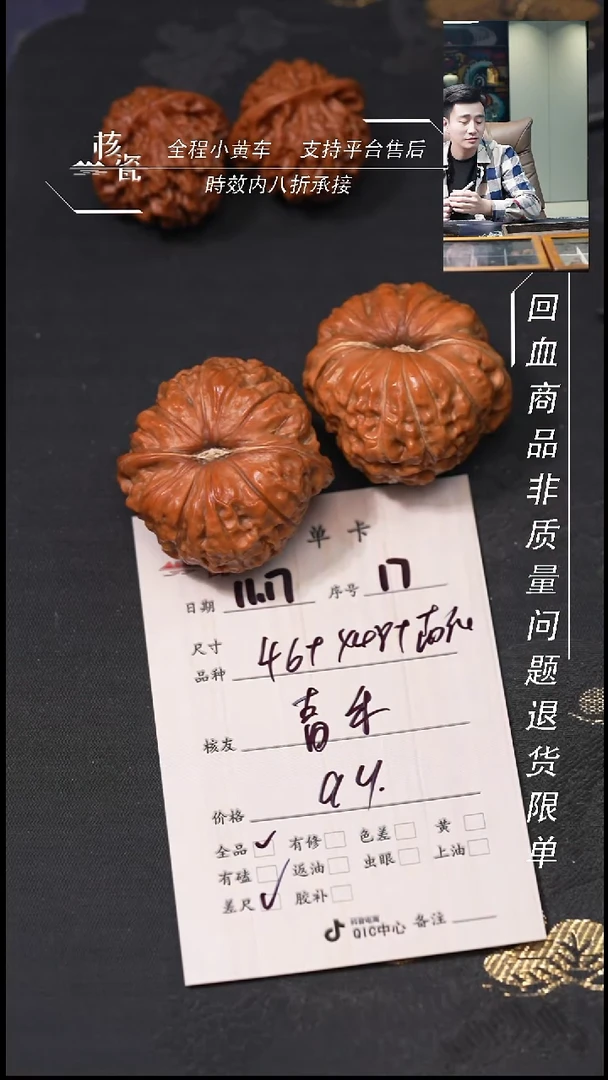 核瓷
全程小黄车 支持平台售后
時效内八折承接
回血商品非质量问题退货限单
单卡
日期 11.17 序号 17
尺寸
品种 46+
核友
价格
全品 有修 色差 黄
有磕 返油 虫眼 上油
差尺 胶补
QIC中心 备注